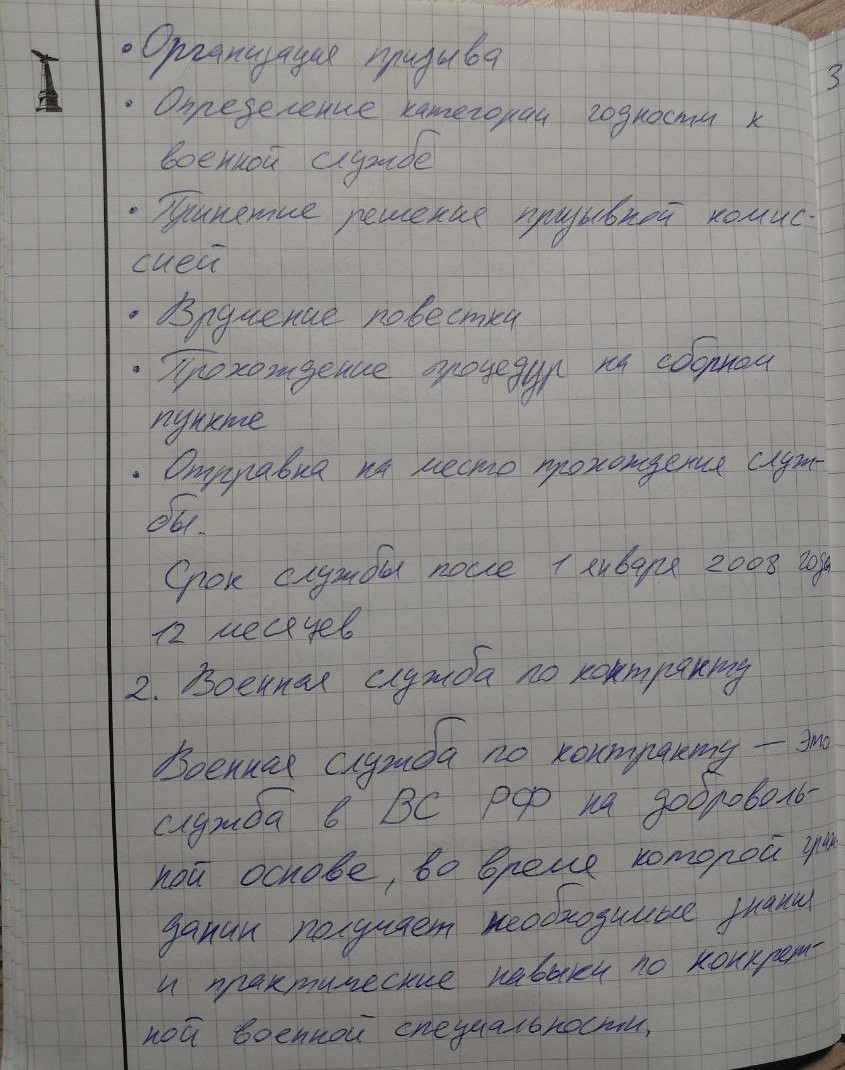 • Организация призыва
• Определение категории годности к
военной службе
• Принятие решение призывной комис-
сией
• Вручение повестки
• Прохождение процедур на сборном
пункте
• Отправка на место прохождение служ-
бы.
Срок службы после 1 января 2008 года
12 месяцев
2. Военная служба по контракту
Военная служба по контракту — это
служба в ВС РФ на доброволь-
ной основе, во время которой граж
данин получает необходимые знания
и практические навыки по конкрет-
ной военной специальности.
3